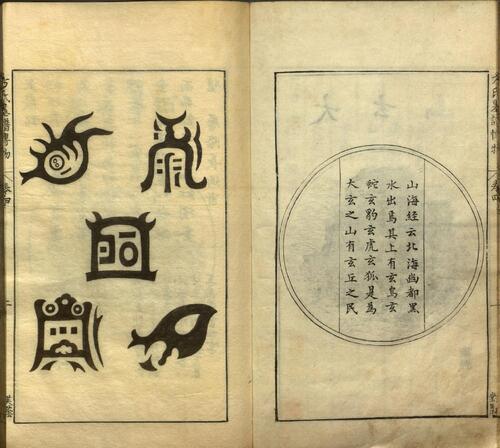 山海經云北海幽都黑
水出焉其上有玄鳥玄
蛇玄豹玄虎玄狐是爲
大玄之山有玄丘之民
方氏墨譜博物
卷四
二
美蔭